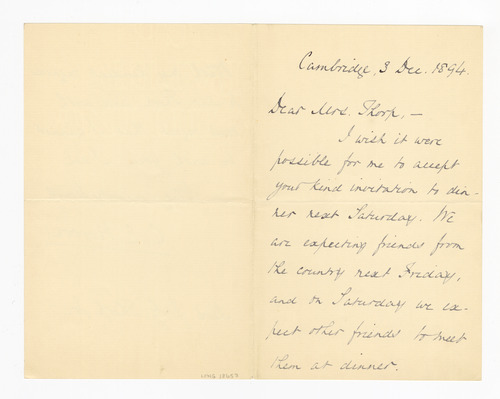 Cambridge, 3 Dec. 1894.
Dear Mrs. Thorp, —
I wish it were
possible for me to accept
your kind invitation to din-
ner next Saturday. We
are expecting friends from
the country next Friday,
and on Saturday we ex-
pect other friends to meet
them at dinner.